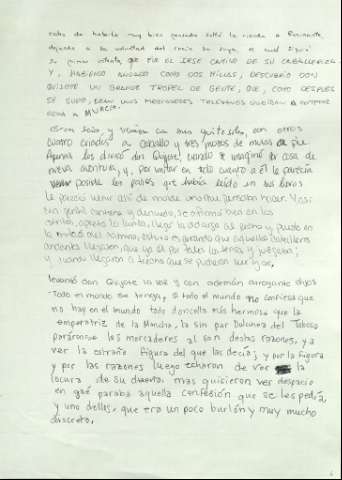 cabo de haberlo muy bien pensado soltó la rienda a Rocinante,
dejando a su voluntad del rocín la suya, el cual siguió
su primer intento, que fue el irse camino de su caballeriza.
Y, habiendo andado como dos millas, descubrió don
Quijote un grande tropel de gente, que, como después
se supo, eran unos mercaderes toledanos que iban a comprar
seda a Murcia.
eran seis y venían con sus quitasoles, con otros
cuatro criados a caballo y tres mozos de mulas a pie
Apenas los divisó don Quijote cuando se imaginó ser cosa de
nueva aventura; y, por imitar en todo cuanto a él le parecía
posible los pasos que había leído en sus libros
le pareció venir allí de molde uno que pensaba hacer. Y así
con gentil continente y denuedo, se afirmó bien en los
estribos, apretó la lanza, llegó la adarga al pecho y, puesto en
la mitad del camino, estuvo esperando que aquellos caballeros
andantes llegasen, que ya él por tales los tenía y juzgaba;
y cuando llegaron a trecho que se pudieron ver y oír,
levantó don Quijote la voz y con ademán arrogante dijo:
-Todo el mundo se tenga, si todo el mundo no confiesa que
no hay en el mundo todo doncella más hermosa que la
emperatriz de la Mancha, la sin par Dulcinea del Toboso
paráronse los mercaderes al son destas razones, y a
ver la estraña figura del que las decía; y por la figura
y por las razones luego echaron de ver la
locura de su dueño. mas quisieron ver despacio
en qué paraba aquella confesión que se les pedía,
y uno dellos, que era un poco burlón y muy mucho
discreto,